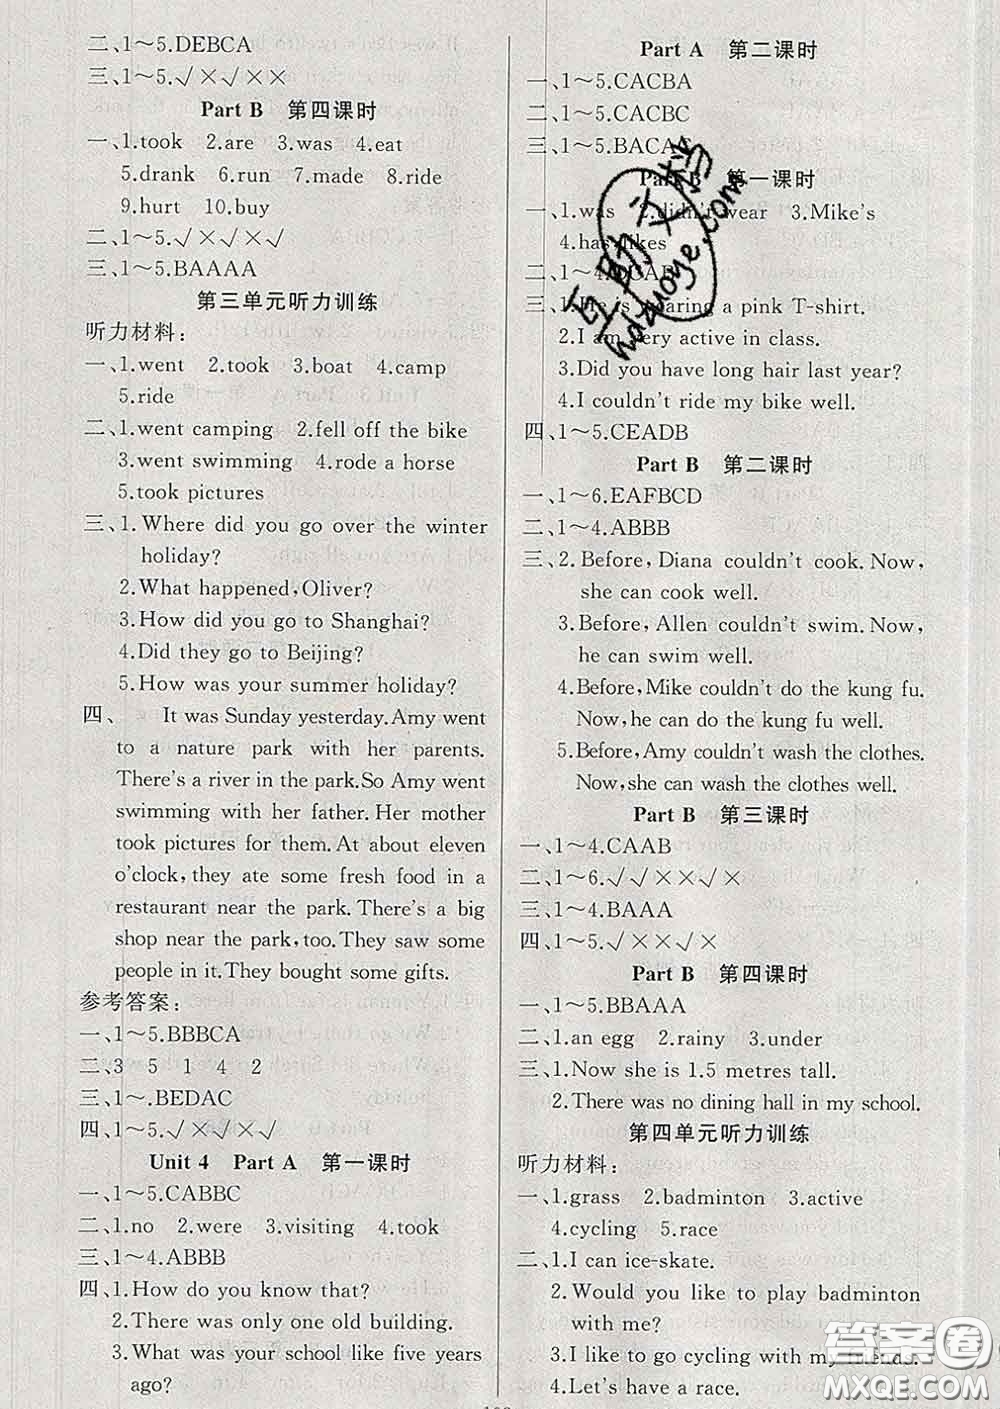 二、1～5.DEBCA
三、1～5.√××√××
Part B 第四课时
一、1.took 2.are 3.was 4.eat
5.drank 6.run 7.made 8.ride
9.hurt 10.buy
二、1～5.√×√×√
三、1～5.BAAAA
第三单元听力训练
听力材料:
一、1.went 2.took 3.boat 4.camp
5.ride
二、1.went camping 2.fell off the bike
3.went swimming 4.rode a horse
5.took pictures
三、1. Where did you go over the winter
holiday?
2.What happened,Oliver?
3.How did you go to Shanghai?
4.Did they go to Beijing?
5.How was your summer holiday?
四、 It was Sunday yesterday.Amy went
to a nature park with her parents.
There's a river in the park.So Amy went
swimming with her father. Her mother
took pictures for them. At about eleven
o'clock, they ate some fresh food in a
restaurant near the park. There's a big
shop near the park, too. They saw some
people in it.They bought some gifts.
参考答案:
一、1～5.BBBCA
二、3 5 1 4 2
三、1～.BEDAC
四、1～5.√×√×√
Unit 4 Part A 第一课时
一、1～5.CABBC
二、1.no 2.were 3.visiting 4.took
三、1～4.ABBB
四、1.How do you know that?
2.There was only one old building.
3. What was your school like five years
ago?
Part A 第二课时
一、1～5.CACBA
二、1～5.CACBC
三、1～5.BACAC
Part B 第一课时
一、1.was 2.didn't wear 3.Mike's
4.has likes
二、1～4.
三、1. is wearing a pink T-shirt.
2.I am very active in class.
3.Did you have long hair last year?
4.I couldn't ride my bike well.
四、1～5.CEADB
Part B 第二课时
一、1～6.EAFBCD
二、1～4.ABBB
三、2. Before, Diana couldn't cook. Now,
she can cook well.
3. Before, Allen couldn't swim. Now,
he can swim well.
4.Before,Mike couldn't do the kung fu.
Now,he can do the kung fu well.
5.Before,Amy couldn't wash the clothes.
Now,she can wash the clothes well.
Part B 第三课时
一、1～4.CAAB
二、1～6.√√××√×
三、1～4.BAAA
四、1～5.√××√×
Part B 第四课时
一、1～5.BBAAA
二、1.an egg 2.rainy 3.under
三、1.Now she is 1.5 metres tall.
2.There was no dining hall in my school.
第四单元听力训练
听力材料:
一、1.grass 2.badminton 3.active
4.cycling 5.race
二、1.I can ice-skate.
2. Would you like to play badminton
with me?
3.I like to go cycling with my friends.
4.Let's have a race.
互助文档
hdzuoye.com
答案圈
MXQE.COM